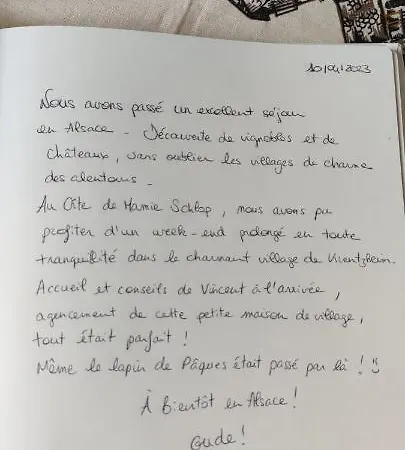 10/04/2023
Nous avons passé un excellent séjour
en Alsace - Découverte de vignobles et de
châteaux, sans oublier les villages de charme
des alentours -
Au Gîte de Mamie Schlop, nous avons pu
profiter d'un week-end prolongé en toute
tranquillité dans le charmant village de Kientzheim.
Accueil et conseils de Vincent à l'arrivée,
agencement de cette petite maison de village,
tout était parfait !
Même le lapin de Pâques était passé par là ! :)
À Bientôt en Alsace !